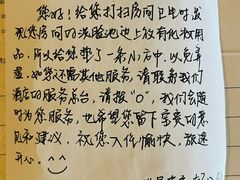 您好！给您打扫房间卫生时发
现您房间的洗脸池边上放有化妆用
品，所以给您垫了一条小方巾，以免弄
湿，如您还需其他服务，请联系我们
酒店的服务总台，请拨“0”，我们会随
时为您服务，也希望您留下宝贵的意
见和建议，祝您入住愉快，旅途
开心。